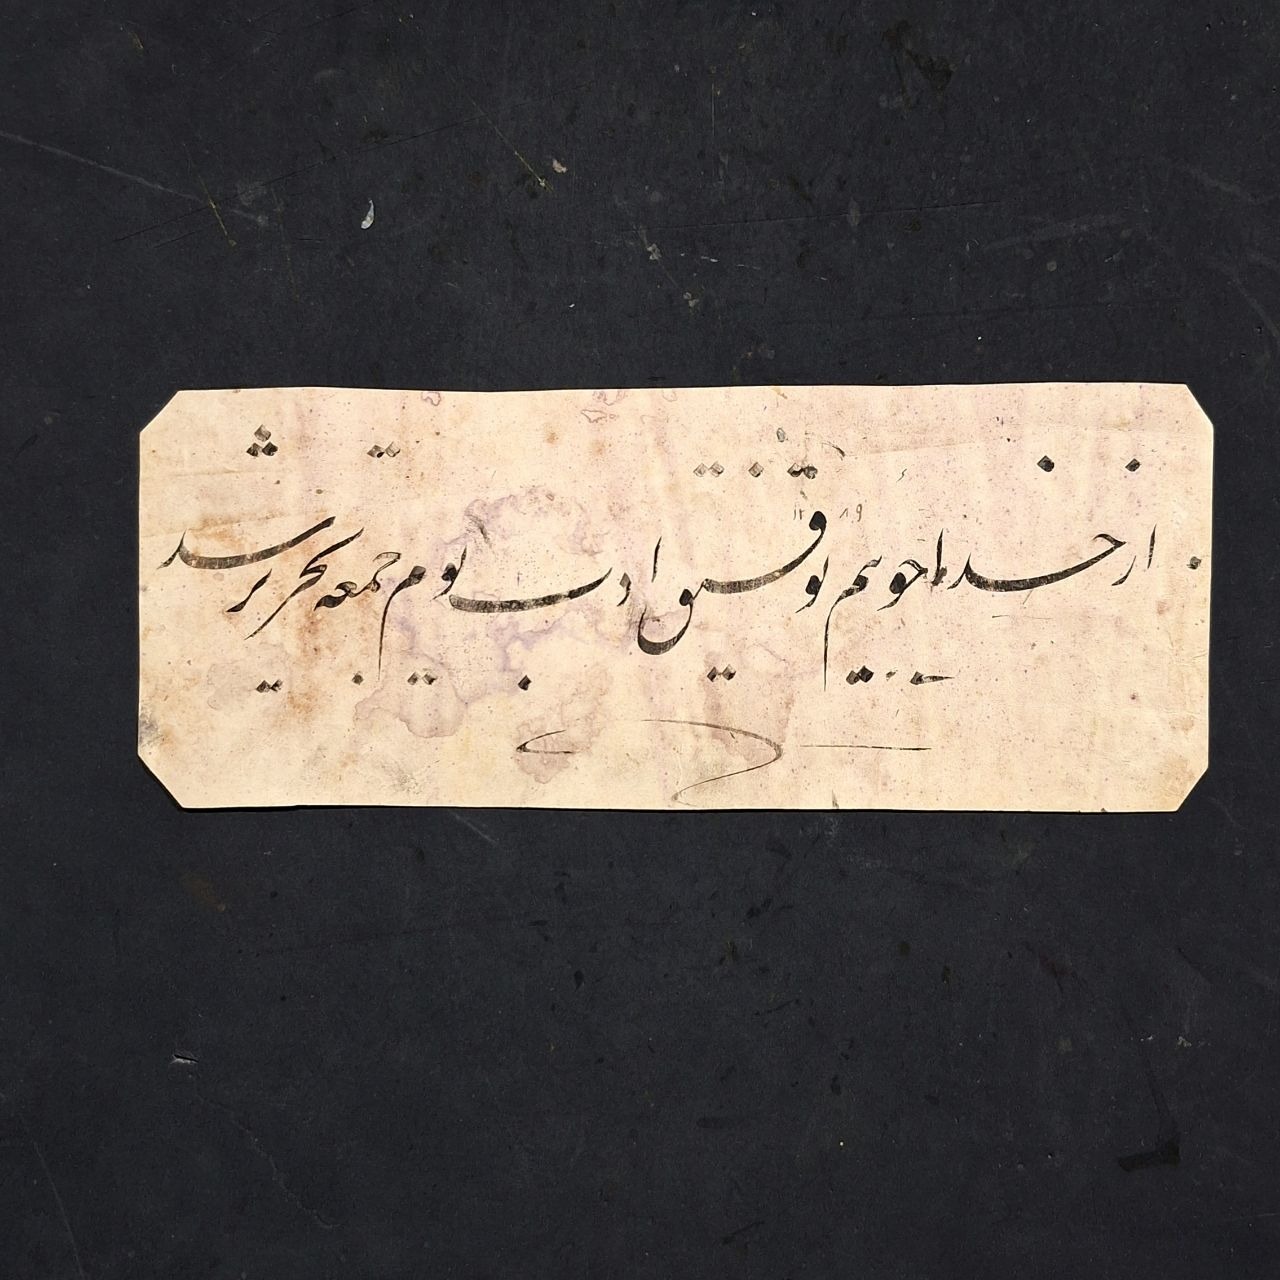 از خدا جوئیم توفیق ادب یوم جمعه تحریر شد